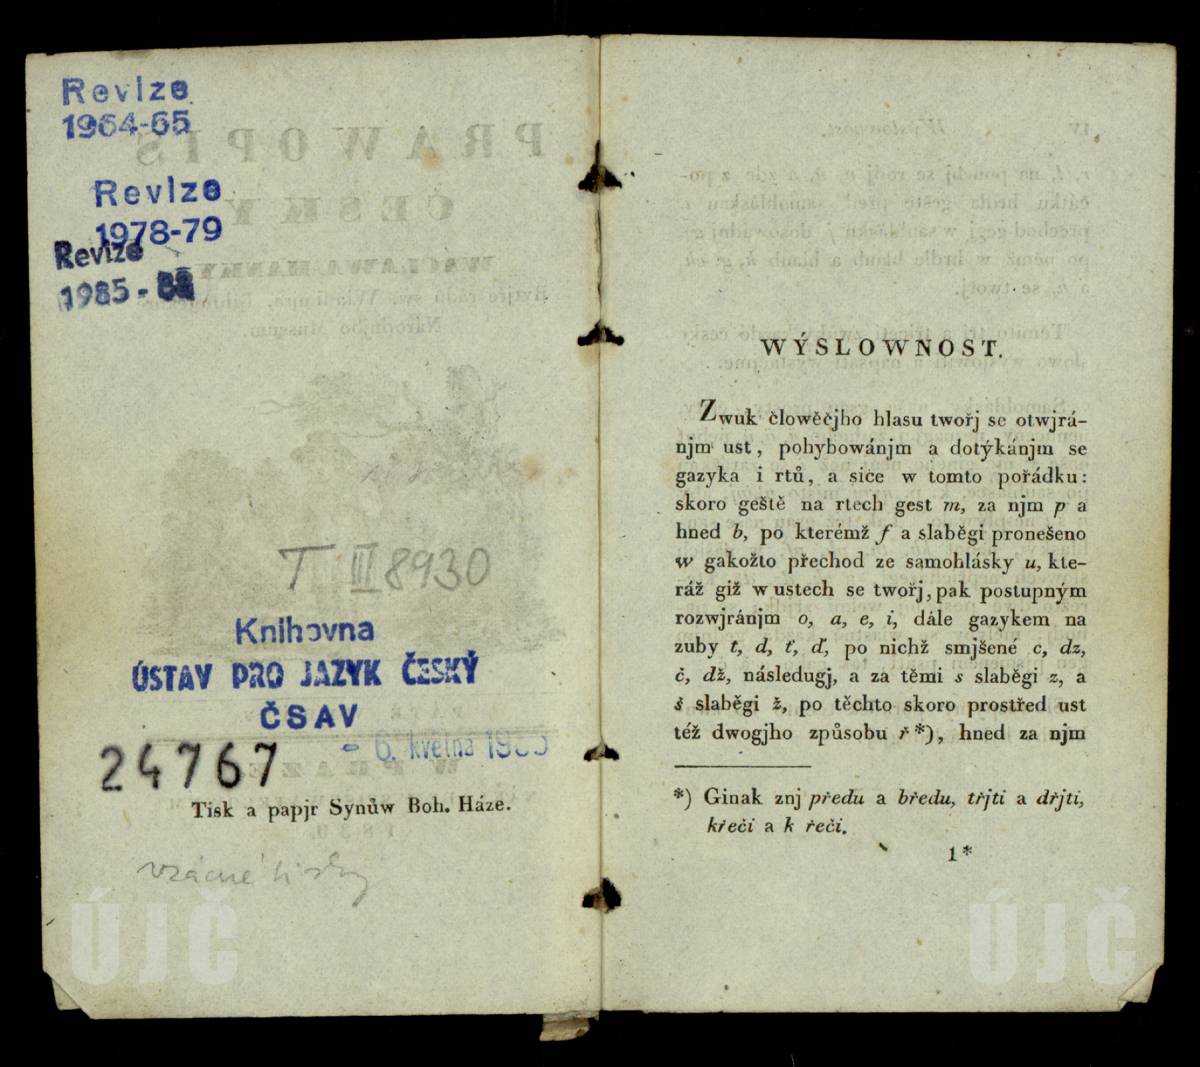 Revize
1964-65
Revize
1978-79
Revize
1985-
T III 8930
Knihovna
ÚSTAV PRO JAZYK ČESKÝ
ČSAV
- 6. května
24767
Tisk a papjr Synůw Boh. Háze.
vzácné tisky
ÚJČ
WÝSLOWNOST.
Zwuk člowěčjho hlasu twořj se otwjrá-
njm ust, pohybowánjm a dotýkánjm se
gazyka i rtů, a sice w tomto pořádku:
skoro geště na rtech gest m, za njm p a
hned b, po kterémž f a slaběgi pronešeno
w gakožto přechod ze samohlásky u, kte-
ráž giž w ustech se twořj, pak postupným
rozwjránjm o, a, e, i, dále gazykem na
zuby t, d, ť, ď, po nichž smjšené c, dz,
č, dž, následugj, a za těmi s slaběgi z, a
š slaběgi ž, po těchto skoro prostřed ust
též dwogjho způsobu ř *), hned za njm
*) Ginak znj předu a břědu, třjti a dřjti,
křeči a k řeči.
1*
ÚJČ